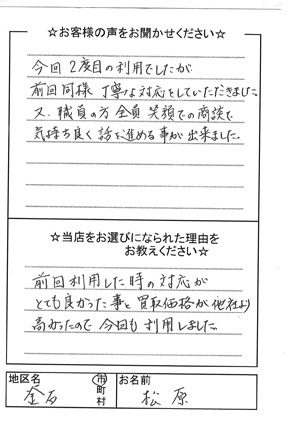 ☆お客様の声をお聞かせください☆
今回2度目の利用でしたが
前回同様 丁寧な対応をしていただきました。
又、職員の方全員 笑顔での商談で
気持ち良く話を進める事が出来ました。
☆当店をお選びになられた理由を
お教えください☆
前回利用した時の対応が
とても良かった事と買取価格が他社より
高かったので今回も利用しました。
地区名
金石
市町村
お名前
松原